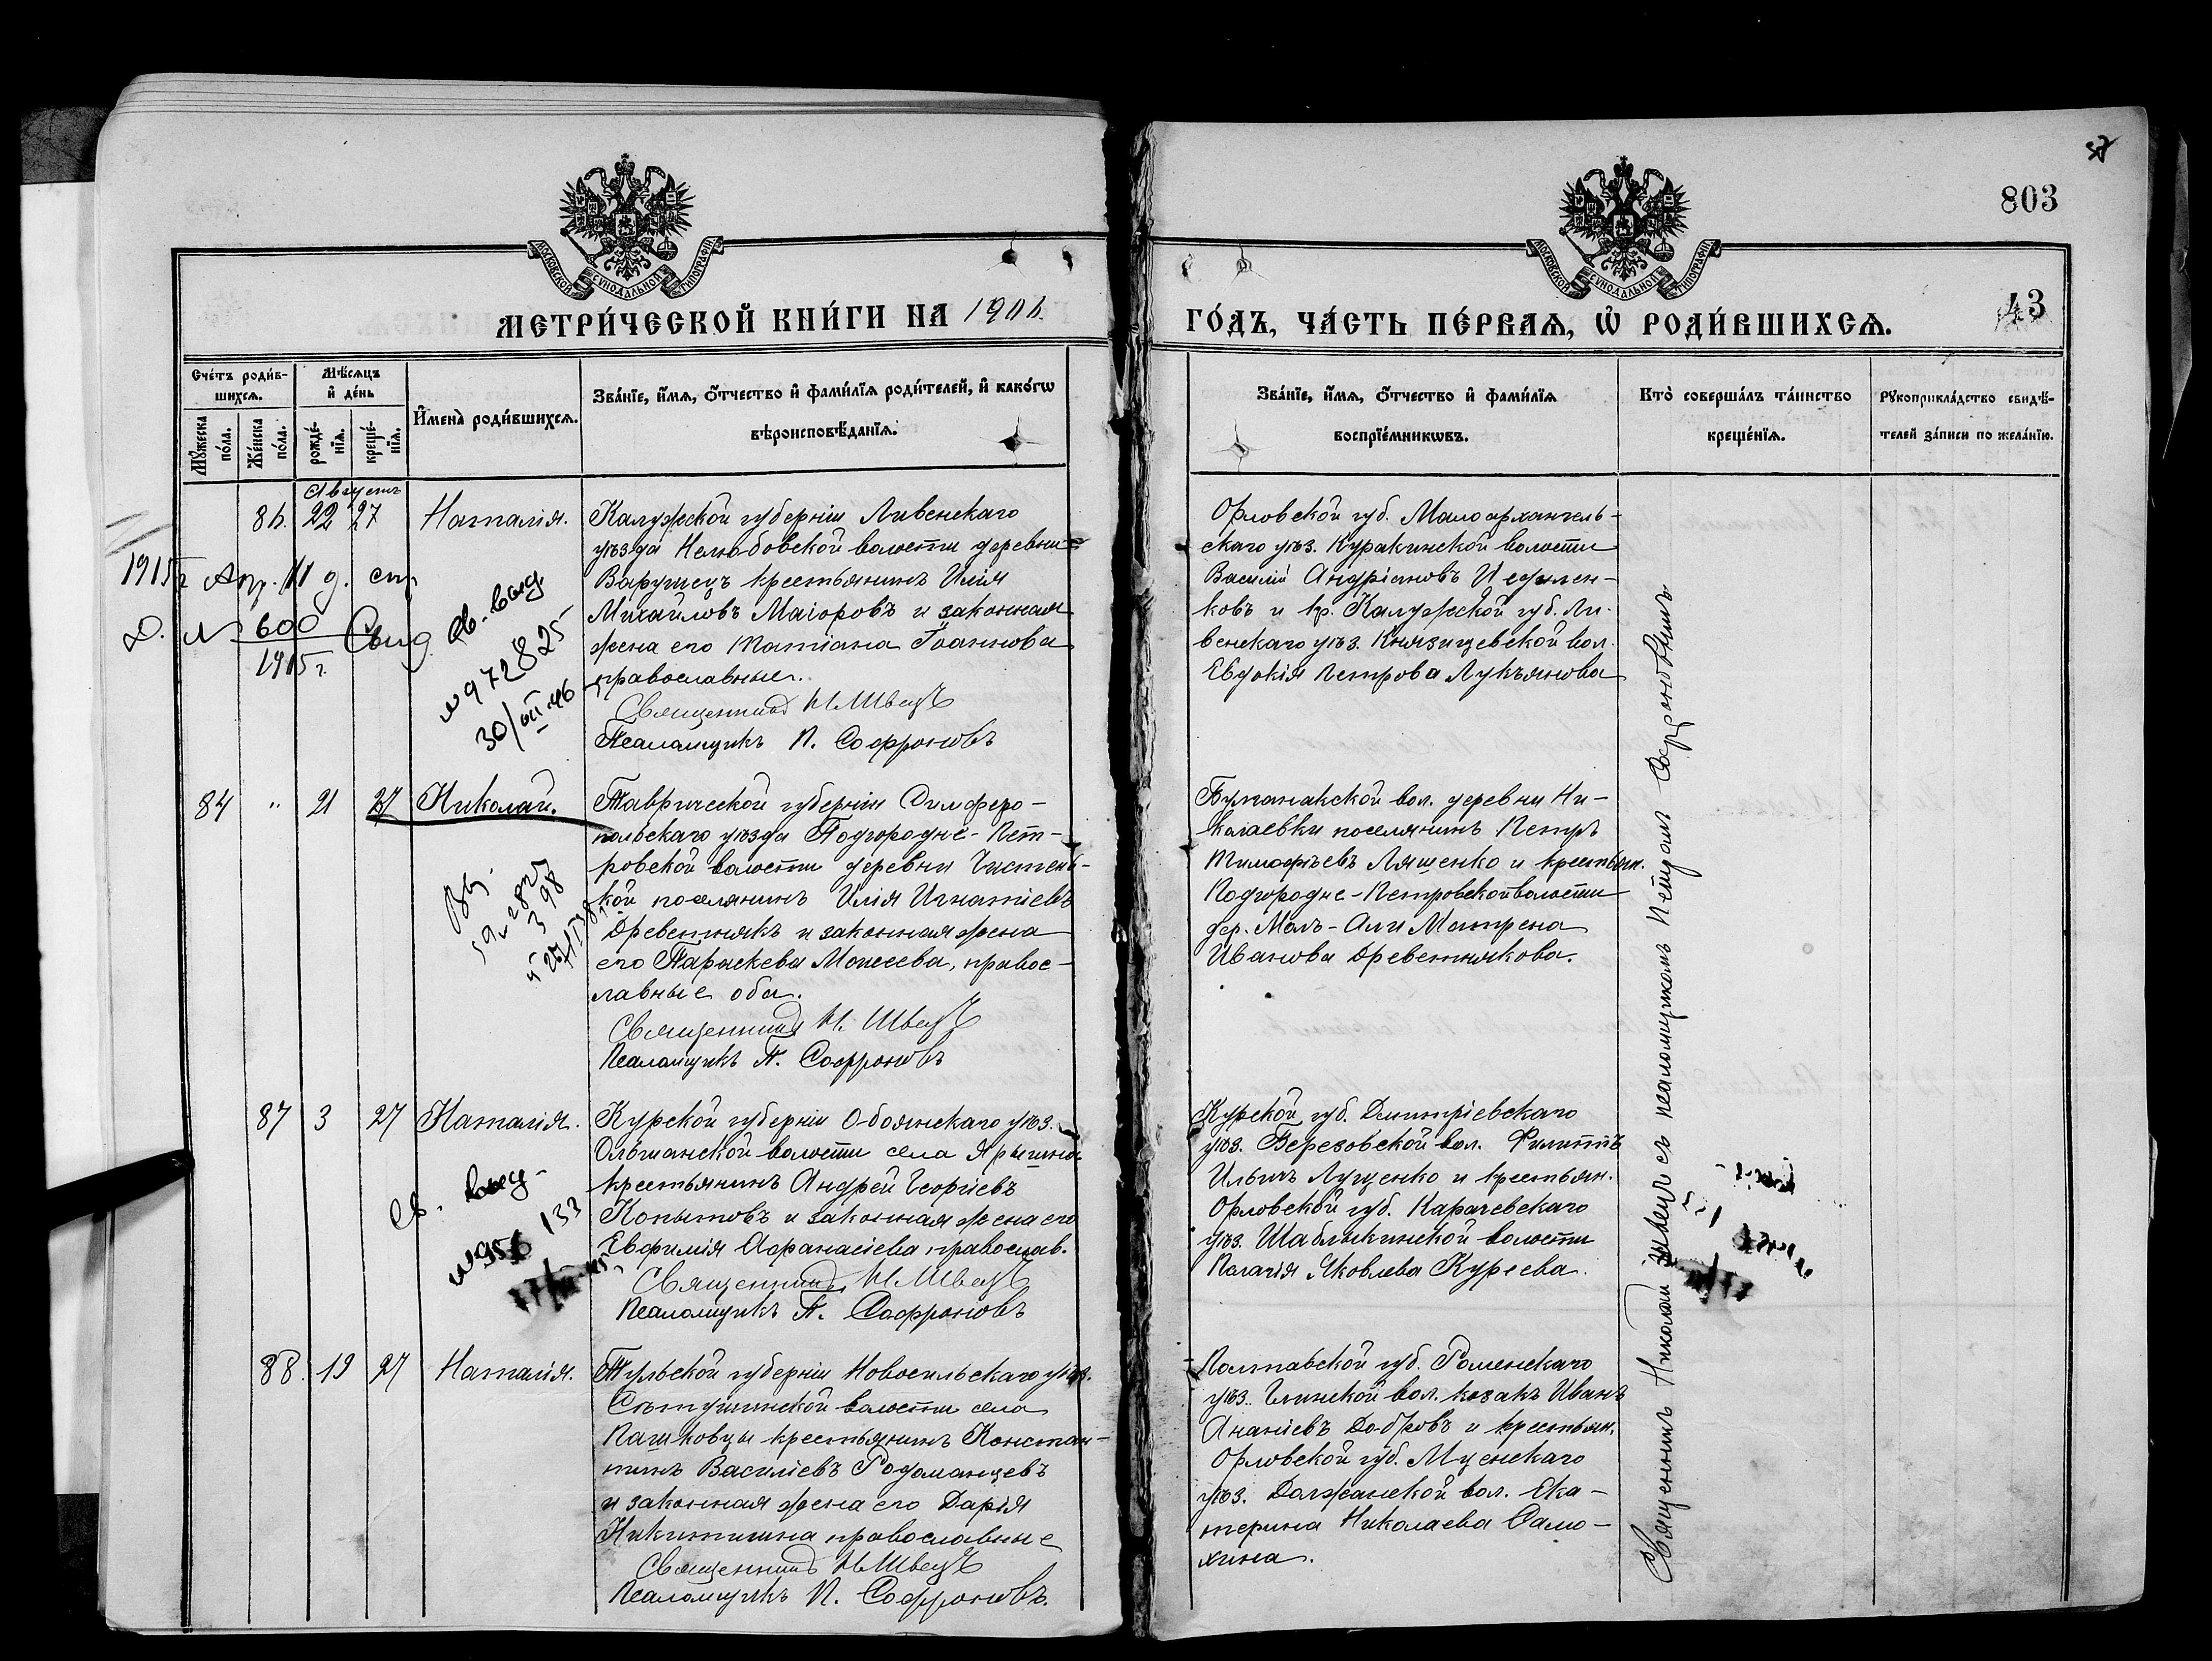 803
43
МОСКОВСКОЙ СѴНОДАЛЬНОЙ ТИПОГРАФІИ
МОСКОВСКОЙ СѴНОДАЛЬНОЙ ТИПОГРАФІИ
МЕТРИ́ЧЕСКОЙ КНИ́ГИ НА 1906.
ГО́ДЪ, ЧА́СТЬ ПЕ́РВАѦ, Ѡ҆ РОДИ́ВШИХСѦ.
Сче́тъ роди́в-
шихсѧ.
Мꙋ́жеска по́ла.
Же́нска по́ла.
Мѣ́сѧцъ и҆ де́нь
рожде́-нїѧ.
креще́-нїѧ.
И҆мена̀ роди́вшихсѧ.
Зва́нїе, и҆́мѧ, ѻ҆́тчество и҆ фами́лїѧ роди́телей, и҆ како́гѡ
вѣроисповѣ́данїѧ.
Зва́нїе, и҆́мѧ, ѻ҆́тчество и҆ фами́лїѧ
воспрїе́мникѡвъ.
Кто̀ соверша́лъ та́инство
креще́нїѧ.
Рꙋкоприкла́дство свидѣ́-
телей за́писи по жела́нїю.
Августъ
86. 22 27 Наталія.
Калужской губерніи Ливенскаго
уѣзда Нелюбовской волости деревни
крестьянинъ Илія
Михайловъ Маіоровъ и законная
жена его Татіана Іоаннова
православные.
Священникъ Н. Швецъ
Псаломщикъ П. Софроновъ
Орловской губ. Малоархангель-
скаго уѣз. Куракинской волости
Василій Андріановъ
ковъ и кр. Калужской губ. Ли-
венскаго уѣз. Князищевской вол.
Евдокія Петрова Лукъянова
1915 г. Апр. 11 д.
№ 600
1915 г.
Св. выд.
№ 972825
30/VII 46
84 " 21 27 Николай.
Таврической губерніи Симферо-
польскаго уѣзда Подгородне-Пет-
ровской волости деревни Чистень-
кой поселянинъ Илія Игнатіевъ
Древетнякъ и законная жена
его Параскева Моисеева, правос-
лавные оба.
Священникъ Н. Швецъ
Псаломщикъ П. Софроновъ
Булганакской вол. деревни Ни-
колаевки поселянинъ Петръ
Тимофѣевъ Ляшенко и крестьян.
Подгородне-Петровской волости
дер. Молъ-Али Матрена
Иванова Древетнякова.
87 3 27 Наталія.
Курской губерніи Обоянскаго уѣз.
Ольшанской волости села Ярыгино
крестьянинъ Андрей Георгіевъ
Копытовъ и законная жена его
Евфимія Афанасіева православ.
Священникъ Н. Швецъ
Псаломщикъ П. Софроновъ
Курской губ. Дмитріевскаго
уѣз. Березовской вол. Филиппъ
Ильичъ Лущенко и крестьян.
Орловской губ. Карачевскаго
уѣз. Шаблыкинской волости
Пелагія Яковлева Куреева.
Св. выд.
№ 956 133
88. 19 27 Наталія.
Тульской губерніи Новосильскаго уѣз.
волости села
Пашковцы крестьянинъ Констан-
тинъ Василіевъ Родоманцевъ
и законная жена его Дарія
Никитишна православные
Священникъ Н. Швецъ
Псаломщикъ П. Софроновъ.
Полтавской губ. Роменскаго
уѣз. Глинской вол. козакъ Иванъ
Ананіевъ Добровъ и крестьян.
Орловской губ. Мценскаго
уѣз. Должанской вол. Ека-
терина Николаева Само-
хина.
Священникъ Николай Швецъ съ псаломщикомъ Петромъ Софроновымъ